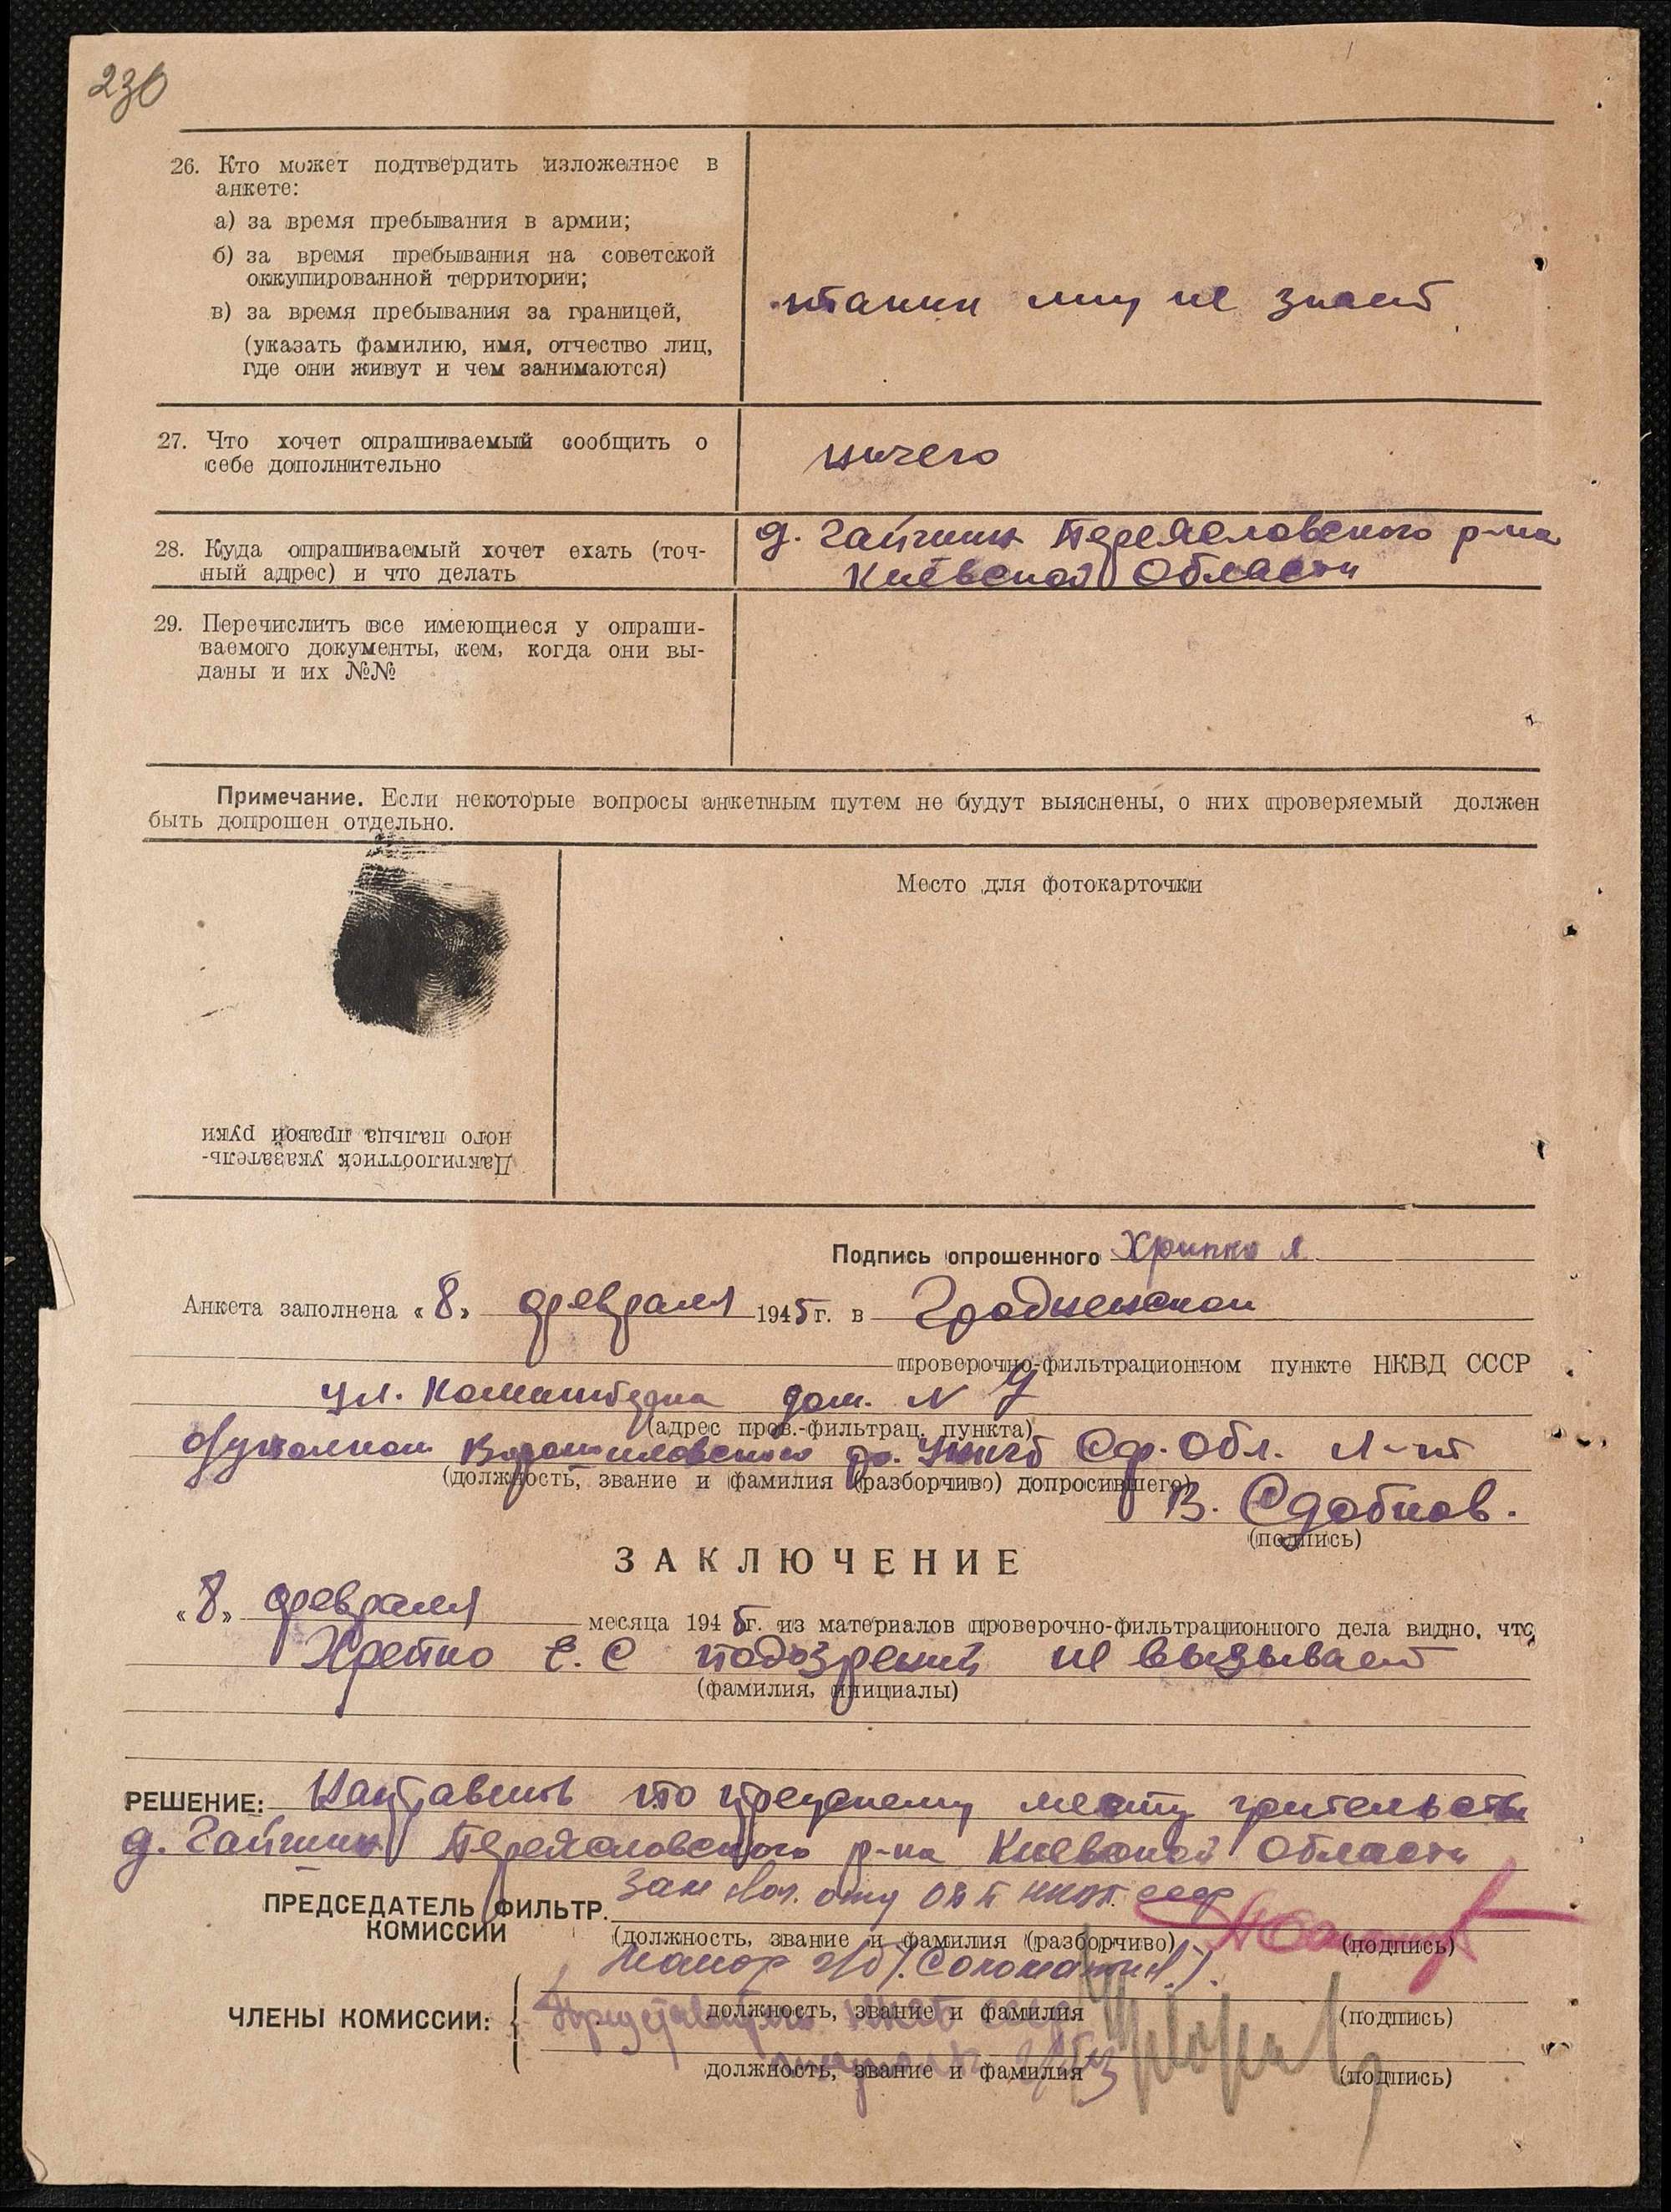 230
26. Кто может подтвердить изложенное в
анкете:
а) за время пребывания в армии;
б) за время пребывания на советской
оккупированной территории;
в) за время пребывания за границей,
(указать фамилию, имя, отчество лиц,
где они живут и чем занимаются)
не знает
27. Что хочет опрашиваемый сообщить о
себе дополнительно
ничего
28. Куда опрашиваемый хочет ехать (точ-
ный адрес) и что делать
д. Гайшин Переясловского р-на
Киевской Области
29. Перечислить все имеющиеся у опраши-
ваемого документы, кем, когда они вы-
даны и их №№
Примечание. Если некоторые вопросы анкетным путем не будут выяснены, о них проверяемый должен
быть допрошен отдельно.
Место для фотокарточки
Дактилооттиск указатель-
ного пальца правой руки
Подпись опрошенного Хрипко Я
Анкета заполнена «8» февраля 1945 г. в Гродненском
проверочно-фильтрационном пункте НКВД СССР
ул. дом. N 9
(адрес пров.-фильтрац. пункта)
о/уполном Ворошиловского Ср. Обл. Л-нт
(должность, звание и фамилия (разборчиво) допросившего)
В. Сдобнов.
(подпись)
ЗАКЛЮЧЕНИЕ
«8» февраля месяца 1945 г. из материалов проверочно-фильтрационного дела видно, что
Хрепко Е. С подозрений не вызывает
(фамилия, инициалы)
РЕШЕНИЕ: Направить по прежнему месту жительства
д. Гайшин Переясловского р-на Киевской Области
ПРЕДСЕДАТЕЛЬ ФИЛЬТР. Зам нач. отд НКВД СССР
КОМИССИИ
(должность, звание и фамилия (разборчиво) (подпись)
Майор г/б /Соломатин/.
ЧЛЕНЫ КОМИССИИ: должность, звание и фамилия (подпись)
НКГБ СССР
должность, звание и фамилия (подпись)